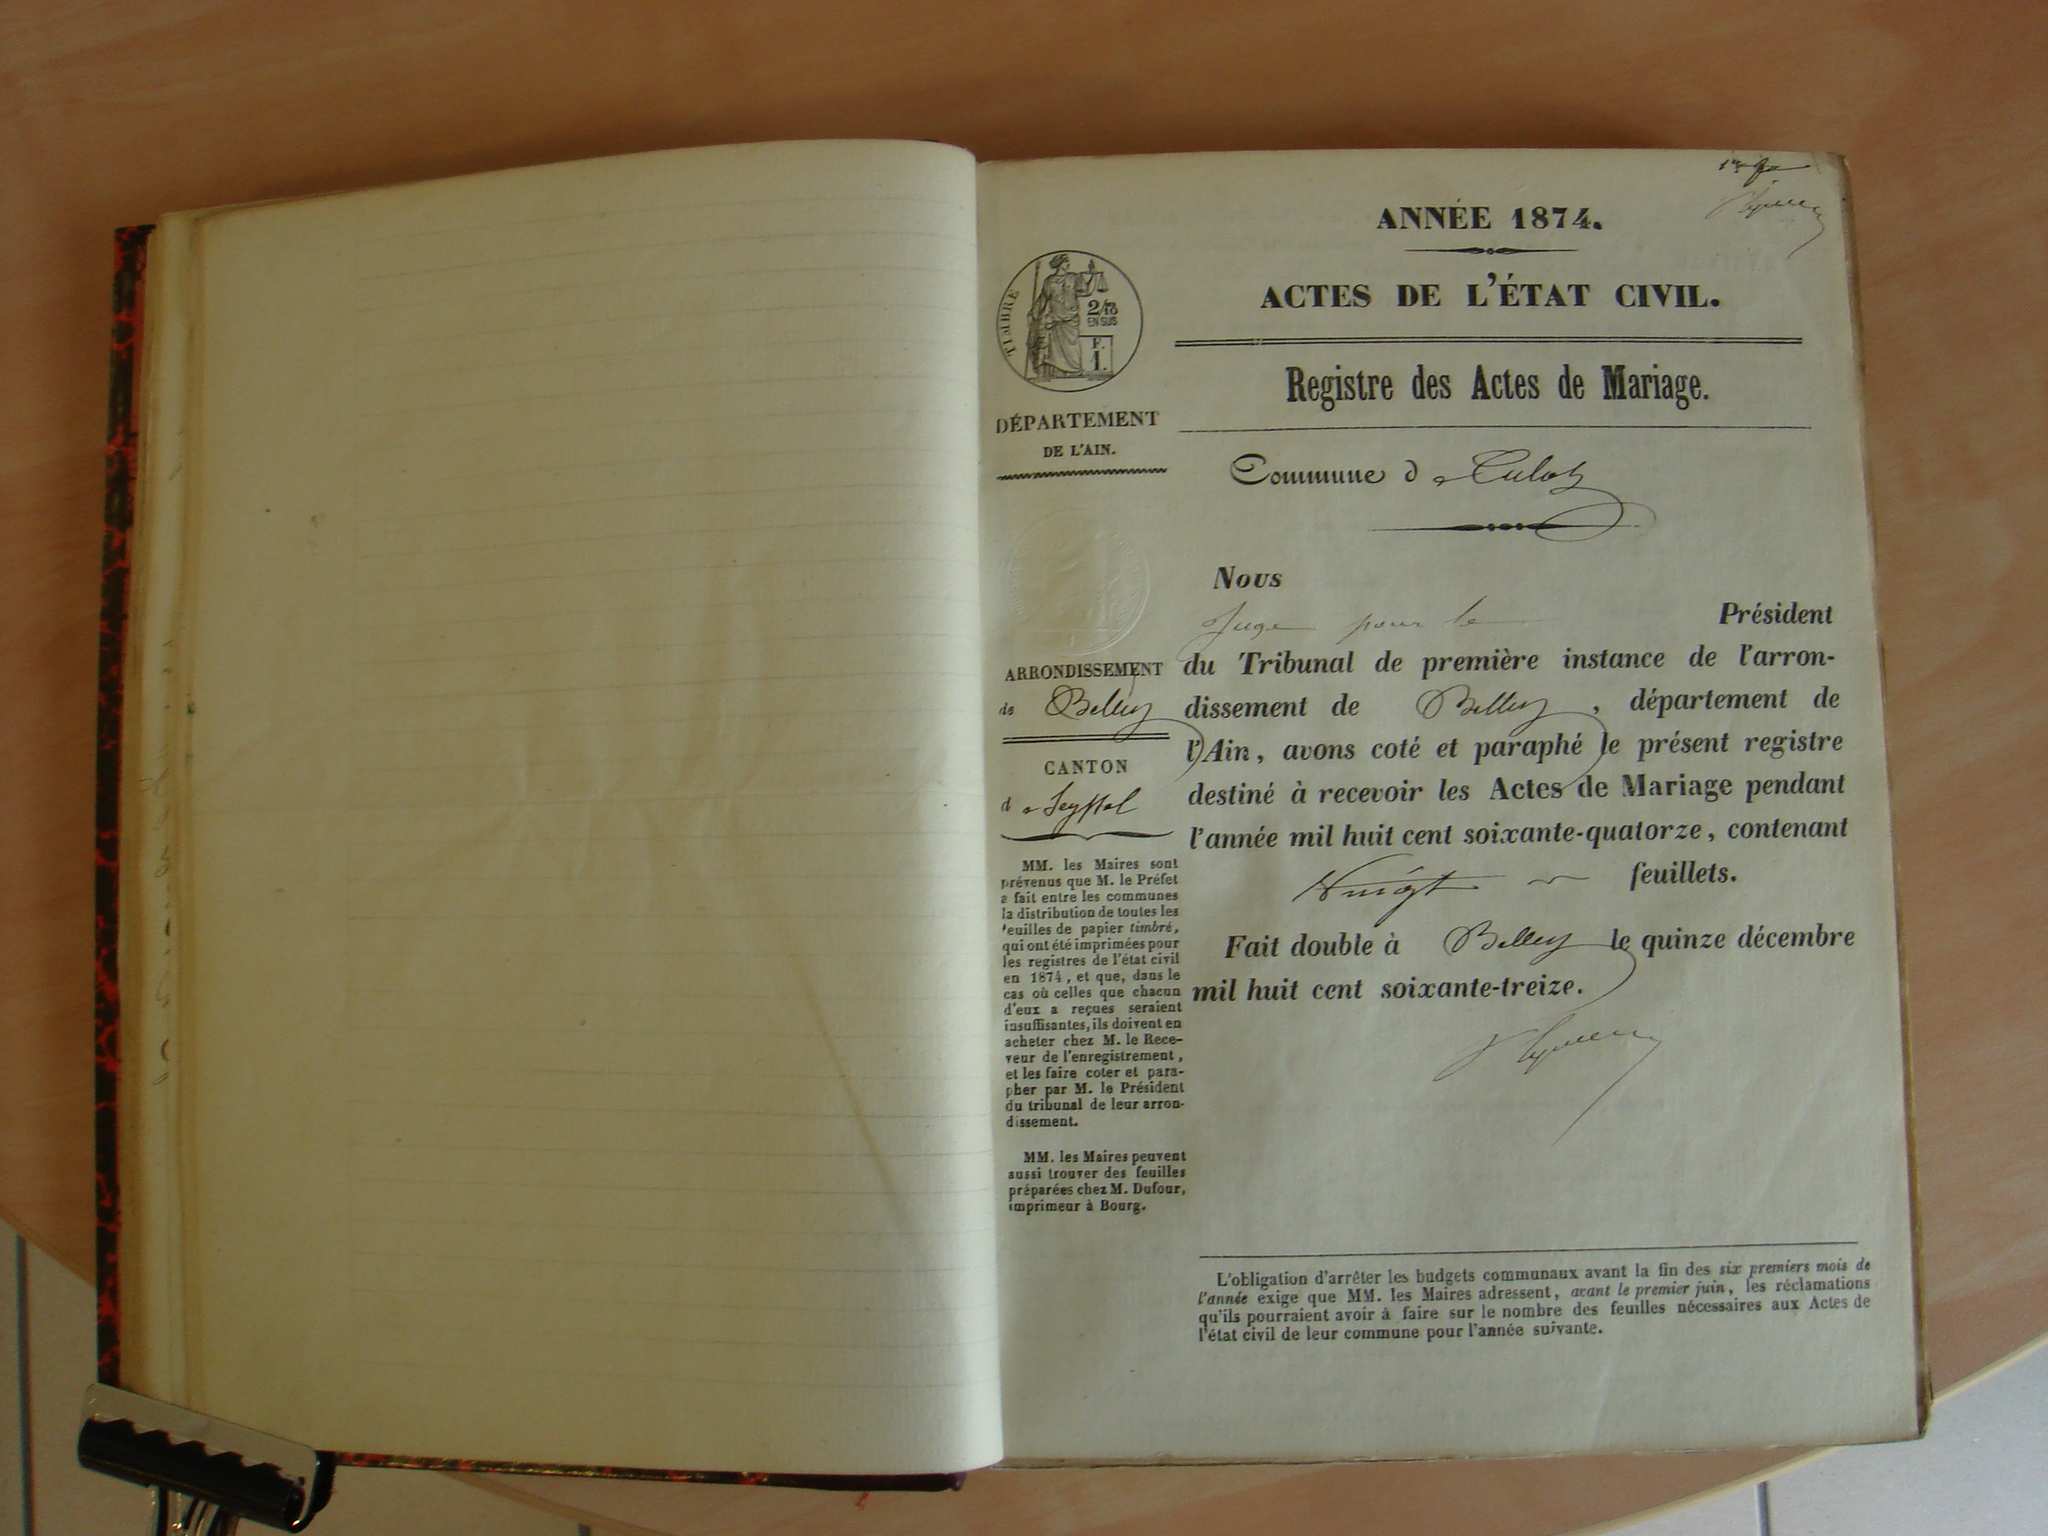 ANNÉE 1874.
ACTES DE L'ÉTAT CIVIL.
Registre des Actes de Mariage.
Commune de Culoz
TIMBRE
2/10
EN SUS
F.
1.
DÉPARTEMENT
DE L'AIN.
ARRONDISSEMENT
de Belley
CANTON
de Seyssel
MM. les Maires sont
prévenus que M. le Préfet
a fait entre les communes
la distribution de toutes les
feuilles de papier timbré,
qui ont été imprimées pour
les registres de l'état civil
en 1874, et que, dans le
cas où celles que chacun
d'eux a reçues seraient
insuffisantes, ils doivent en
acheter chez M. le Rece-
veur de l'enregistrement,
et les faire coter et para-
pher par M. le Président
du tribunal de leur arron-
dissement.
MM. les Maires peuvent
aussi trouver des feuilles
préparées chez M. Dufour,
imprimeur à Bourg.
Nous
Juge pour le Président
du Tribunal de première instance de l'arron-
dissement de Belley, département de
l'Ain, avons coté et paraphé le présent registre
destiné à recevoir les Actes de Mariage pendant
l'année mil huit cent soixante-quatorze, contenant
Vingt feuillets.
Fait double à Belley le quinze décembre
mil huit cent soixante-treize.
L'obligation d'arrêter les budgets communaux avant la fin des six premiers mois de
l'année exige que MM. les Maires adressent, avant le premier juin, les réclamations
qu'ils pourraient avoir à faire sur le nombre des feuilles nécessaires aux Actes de
l'état civil de leur commune pour l'année suivante.